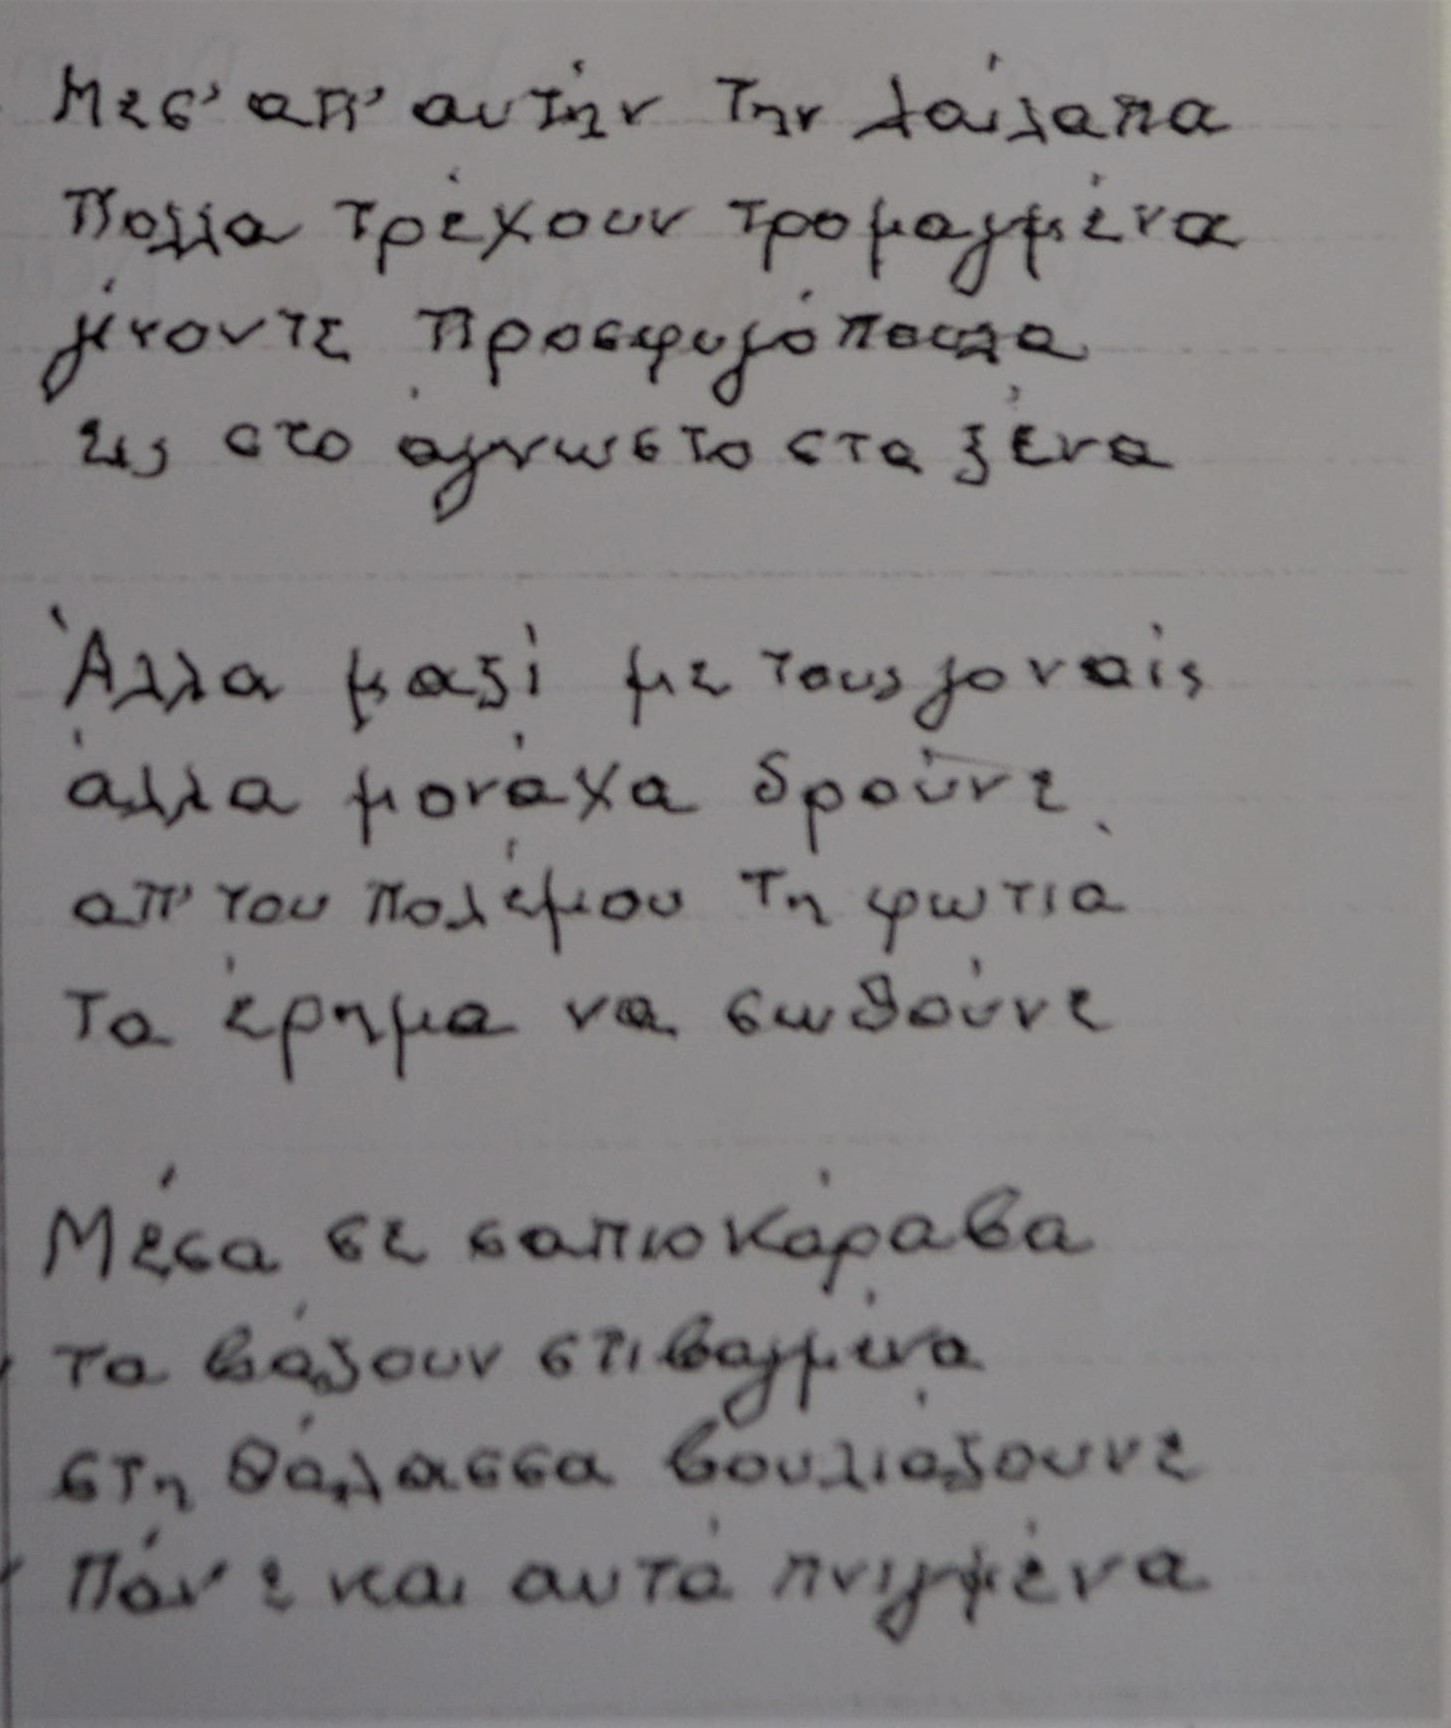 Μεσ' απ' αυτήν την λαίλαπα
Πολλα τρέχουν τρομαγμένα
γίνοντε Προσφυγόπουλα
εις στο άγνωστο στα ξένα
Άλλα μαζί με τους γοναίς
άλλα μονάχα δρούνε
απ' του πολέμου τη φωτιά
Τα έρημα να σωθούνε
Μέσα σε σαπιοκάραβα
τα βάζουν στιβαγμένα
στη θάλασσα βουλιάζουνε
Πάν ε και αυτά πνιγμένα